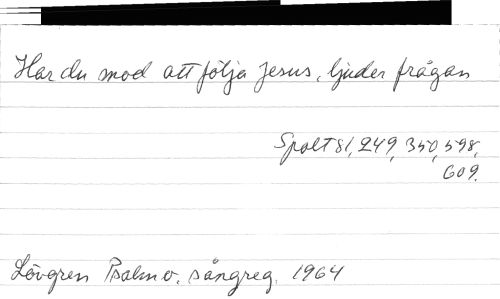 Har du mod att följa Jesus, ljuder frågan
Spalt 81, 249, 350, 598,
609.
Lövgren Psalm o. sångreg. 1964